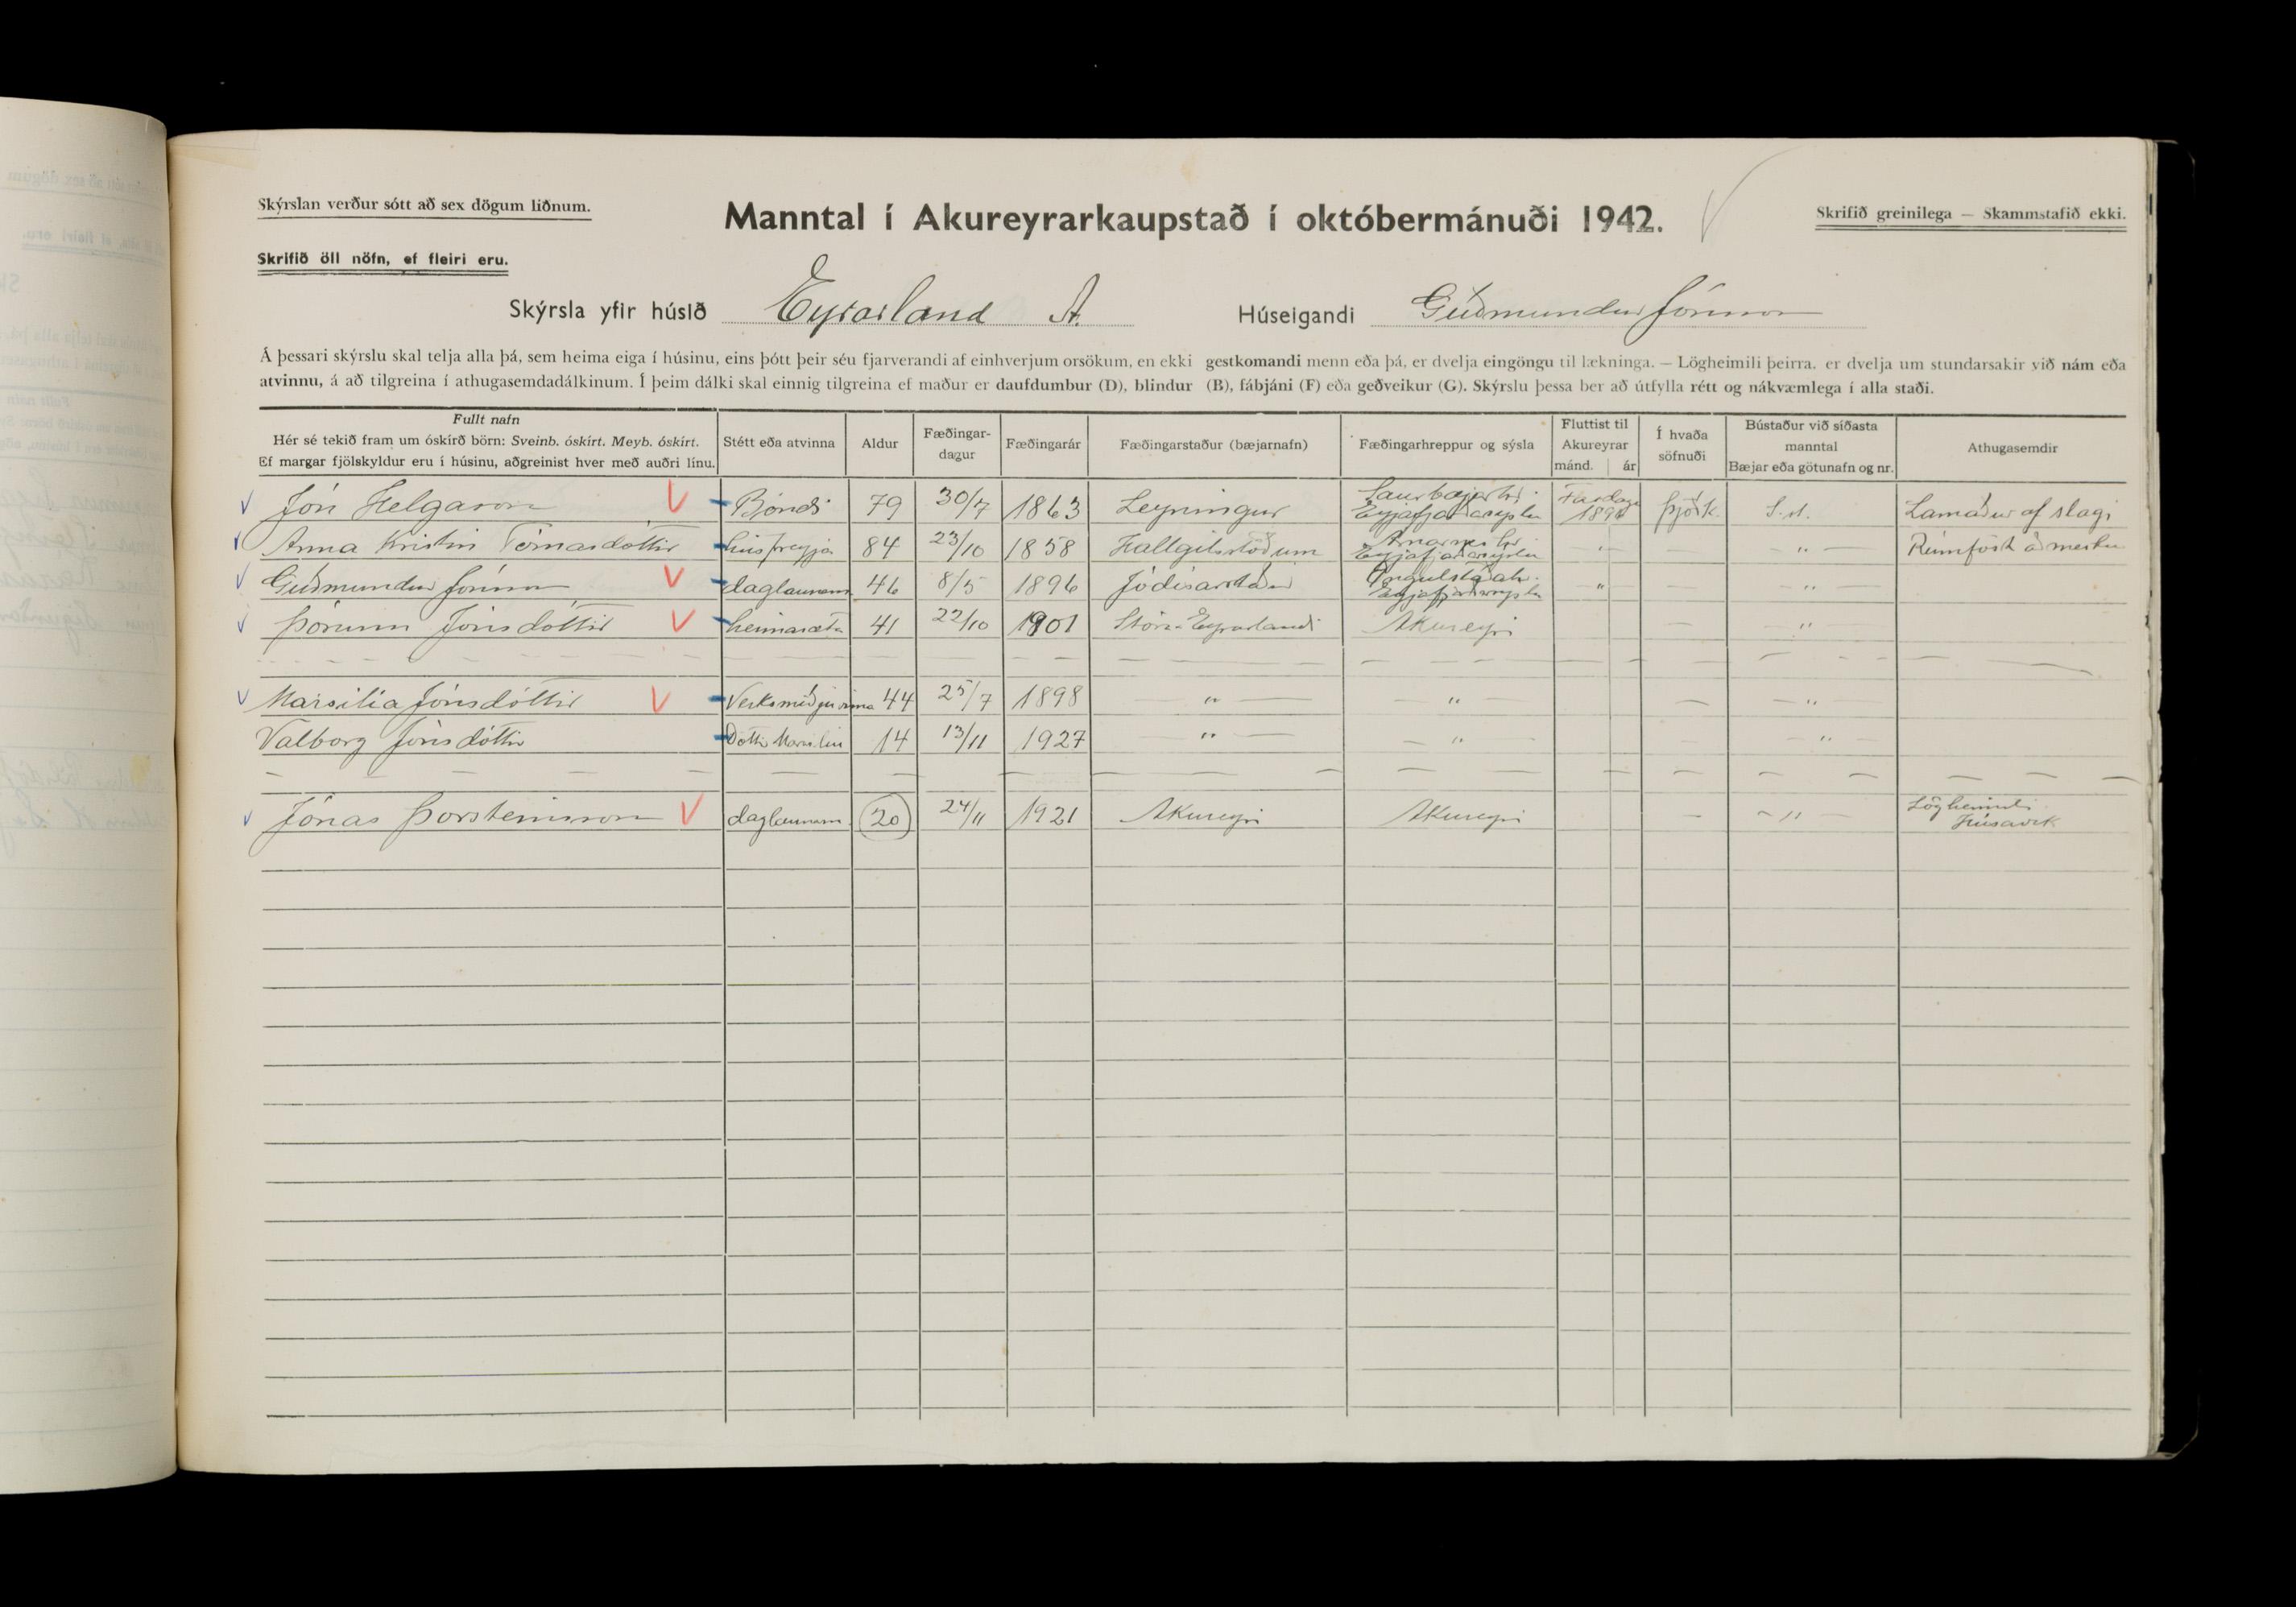 Skýrslan verður sótt að sex dögum liðnum.
Manntal í Akureyrarkaupstað í októbermánuði 1942.
Skrifið greinilega — Skammstafið ekki.
Skrifið öll nöfn, ef fleiri eru.
Skýrsla yfir húsið Eyrarland A. Húseigandi Guðmundur Jónsson
Á þessari skýrslu skal telja alla þá, sem heima eiga í húsinu, eins þótt þeir séu fjarverandi af einhverjum orsökum, en ekki gestkomandi menn eða þá, er dvelja eingöngu til lækninga. — Lögheimili þeirra. er dvelja um stundarsakir við nám eða
atvinnu, á að tilgreina í athugasemdadálkinum. Í þeim dálki skal einnig tilgreina ef maður er daufdumbur (D), blindur (B), fábjáni (F) eða geðveikur (G). Skýrslu þessa ber að útfylla rétt og nákvæmlega í alla staði.
Fullt nafn
Hér sé tekið fram um óskírð börn: Sveinb. óskírt. Meyb. óskírt.
Ef margar fjölskyldur eru í húsinu, aðgreinist hver með auðri línu.
Stétt eða atvinna
Aldur
Fæðingar-
dagur
Fæðingarár
Fæðingarstaður (bæjarnafn)
Fæðingarhreppur og sýsla
Fluttist til
Akureyrar
mánd. ár
Í hvaða
söfnuði
Bústaður við síðasta
manntal
Bæjar eða götunafn og nr.
Athugasemdir
Jón Helgason Bóndi 79 30/7 1863 Leyningur Saurbæjarhr. Eyjafjarðarsýslu Fardaga Þjóðk. S.st. Lamaður af slagi
Anna Kristín Tómasdóttir húsfreyja 84 23/10 1858 Hallgilsstöðum Arnarneshr. Eyjafjarðarsýslu " — — " — Rúmföst að mestu
Guðmundur Jónsson daglaunam 46 8/5 1896 Jódísarstöðum Öngulstaðahr. Eyjafjarðarsýslu " — "
Þórunn Jónsdóttir heimasæta 41 22/10 1901 Stóra-Eyrarlandi Akureyri — "
Marsilía Jónsdóttir Verksmiðjuvinna 44 25/7 1898 " — " — — " —
Valborg Jónsdóttir Dóttir Marsilíu 14 13/11 1927 " — — " — " —
Jónas Þorsteinsson daglaunam. 20 24/11 1921 Akureyri Akureyri — — " — Lögheimili
Húsavík